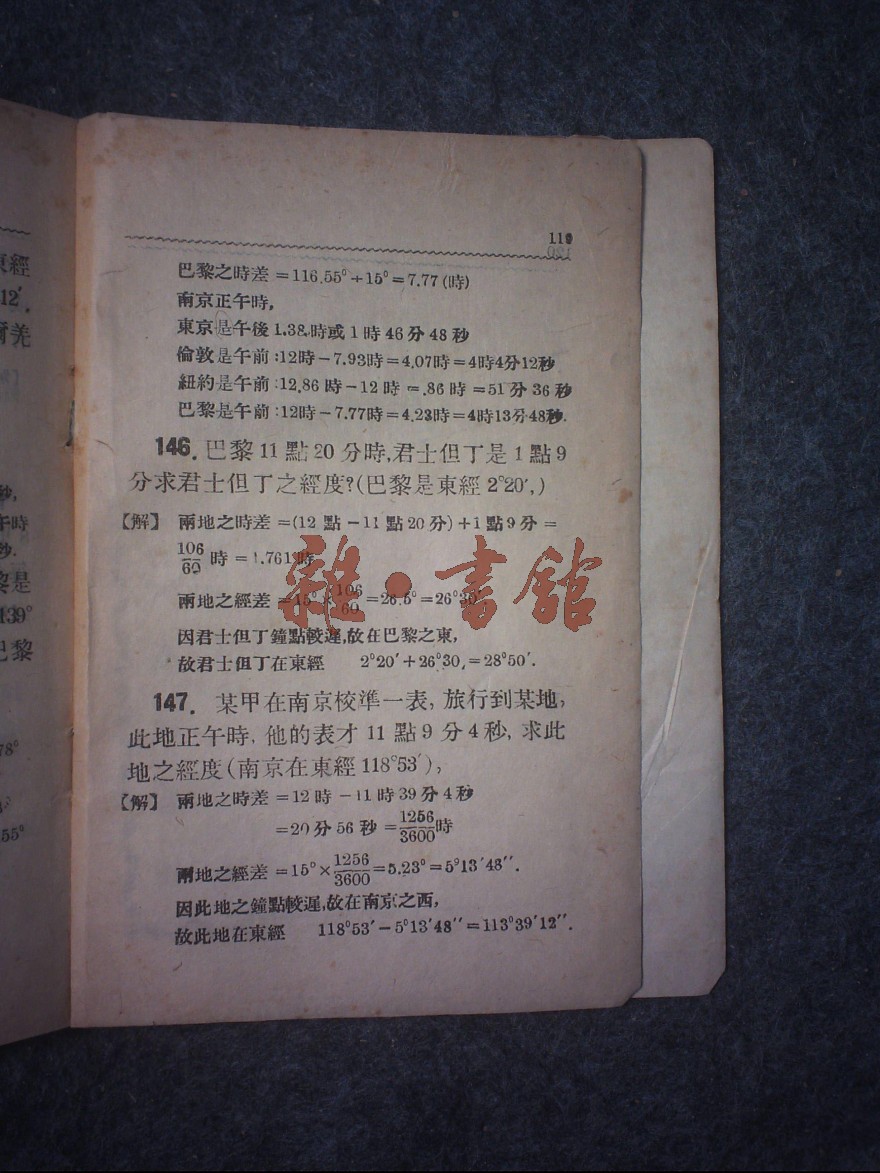 東經
12′.
爾羌
秒,
午時
秒.
黎是
139°
巴黎
78°
55°
119
120
巴黎之時差 =116.55°÷15°=7.77 (時)
南京正午時,
東京是午後 1.38 時或 1 時 46 分 48 秒
倫敦是午前:12時-7.93時=4.07時=4時4分12秒
紐約是午前:12.86 時-12 時 =.86 時=51 分 36 秒
巴黎是午前:12時-7.77時=4.23時=4時13分48秒.
146. 巴黎 11 點 20 分時,君士但丁是 1 點 9
分求君士但丁之經度?(巴黎是東經 2°20′,)
【解】 兩地之時差 =(12 點 -11 點 20 分)+1 點 9 分 =
106/60 時 =1.761時
兩地之經差 =15°×106/60=26.5°=26°30′
因君士但丁鐘點較遲,故在巴黎之東,
故君士但丁在東經 2°20′+26°30,=28°50′.
147. 某甲在南京校準一表, 旅行到某地,
此地正午時, 他的表才 11 點 9 分 4 秒, 求此
地之經度(南京在東經 118°53′),
【解】 兩地之時差 =12 時 -11 時 39 分 4 秒
=20 分 56 秒 =1256/3600時
兩地之經差 =15°×1256/3600=5.23°=5°13′48′′.
因此地之鐘點較遲,故在南京之西,
故此地在東經 118°53′-5°13′48′′=113°39′12′′.
雜·書館